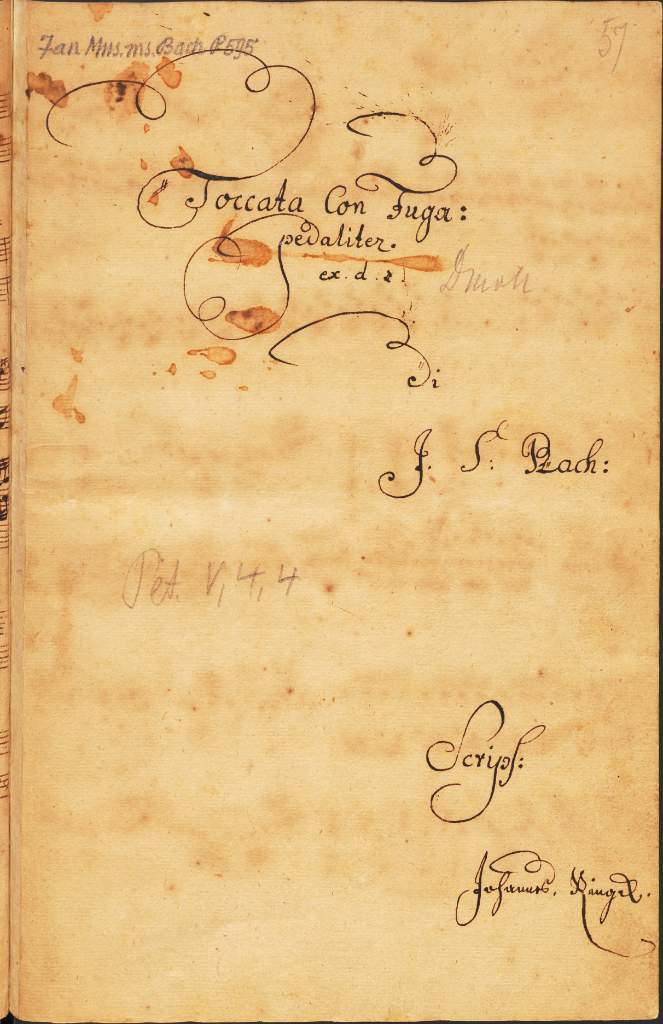 Jan Mus.ms. Bach P 595
57
Toccata Con Fuga:
pedaliter.
ex. d.
Dmoll
Di
J. S. Bach:
Pet. V, 4, 4
Scrips:
Johannes. Ringk.